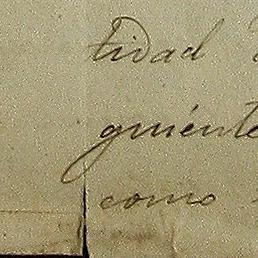 tidad
guiente
como